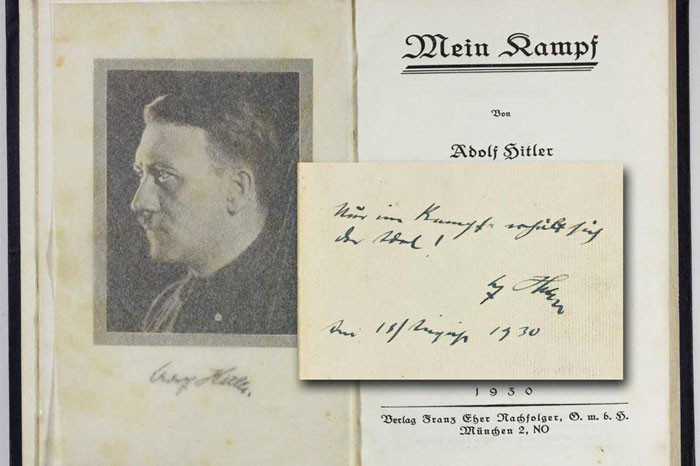 Adolf Hitler.
Mein Kampf
Von
Adolf Hitler
Nur im Kampf erhält sich
der Adel!
Hitler
18/August 1930
1930
Verlag Franz Eher Nachfolger, G. m. b. H.
München 2, NO